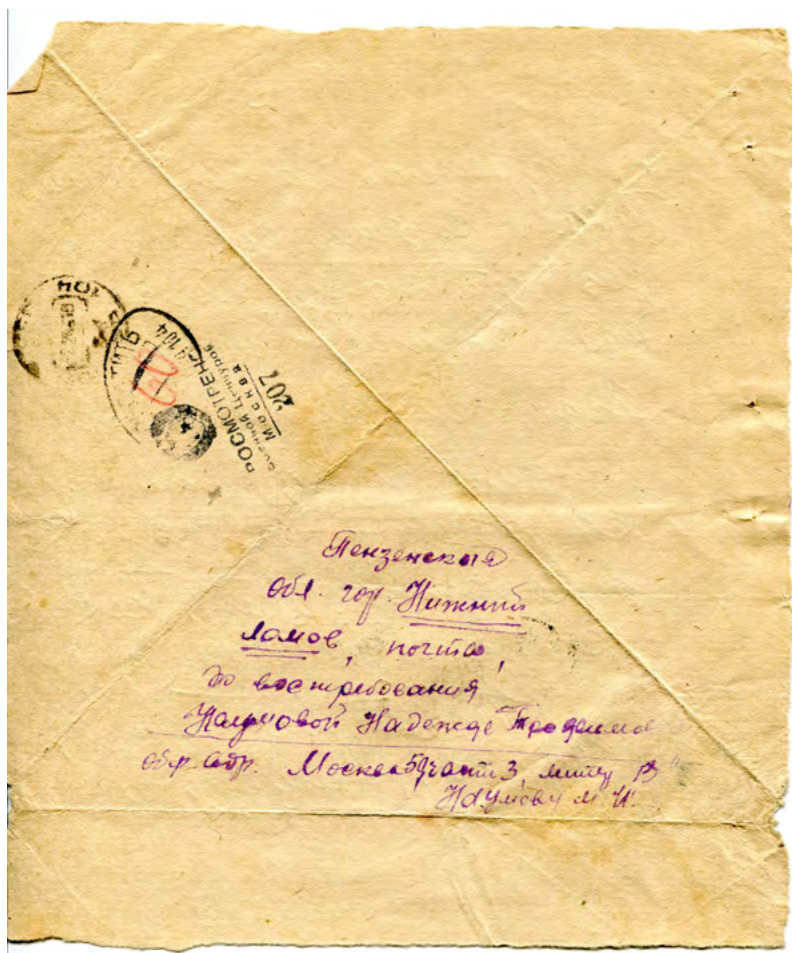 РОСМОТРЕНО
Военной Цензурой
Москва
207
Пензенская
обл. гор. Нижний
Ломов, почта,
до востребования
Наумовой Надежде Трофимов
обр. адр. Москва 53 части 3, литер В"
Наумову М. И.